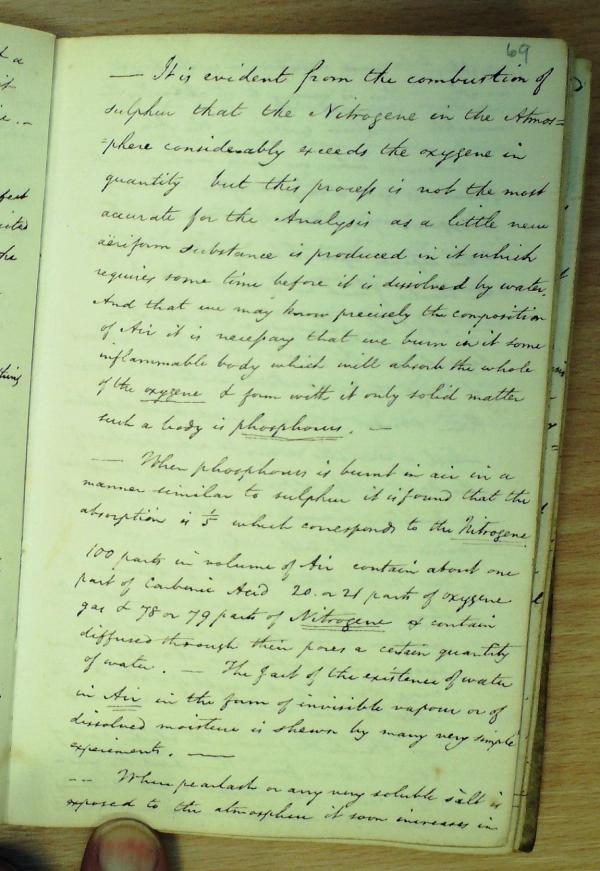 69
— It is evident from the combustion of
sulphur that the Nitrogene in the Atmos=
=phere considerably exceeds the oxygene in
quantity but this process is not the most
accurate for the Analysis as a little new
aëriform substance is produced in it which
requires some time before it is dissolved by water.
And that we may know precisely the composition
of Air it is necessary that we burn in it some
inflammable body which will absorb the whole
of the oxygene & form with it only solid matter
such a body is phosphorus. —
— When phosphorus is burnt in air in a
manner similar to sulphur it is found that the
absorption is 1/5 which corresponds to the Nitrogene
100 parts in volume of Air contain about one
part of Carbonic Acid 20. or 21 parts of oxygene
gas & 78 or 79 parts of Nitrogene & contain
diffused through their pores a certain quantity
of water. — The fact of the existence of water
in Air in the form of invisible vapour or of
dissolved moisture is shewn by many very simple
experiments. —
-- When pearlash or any very soluble salt is
exposed to the atmosphere it soon increases in